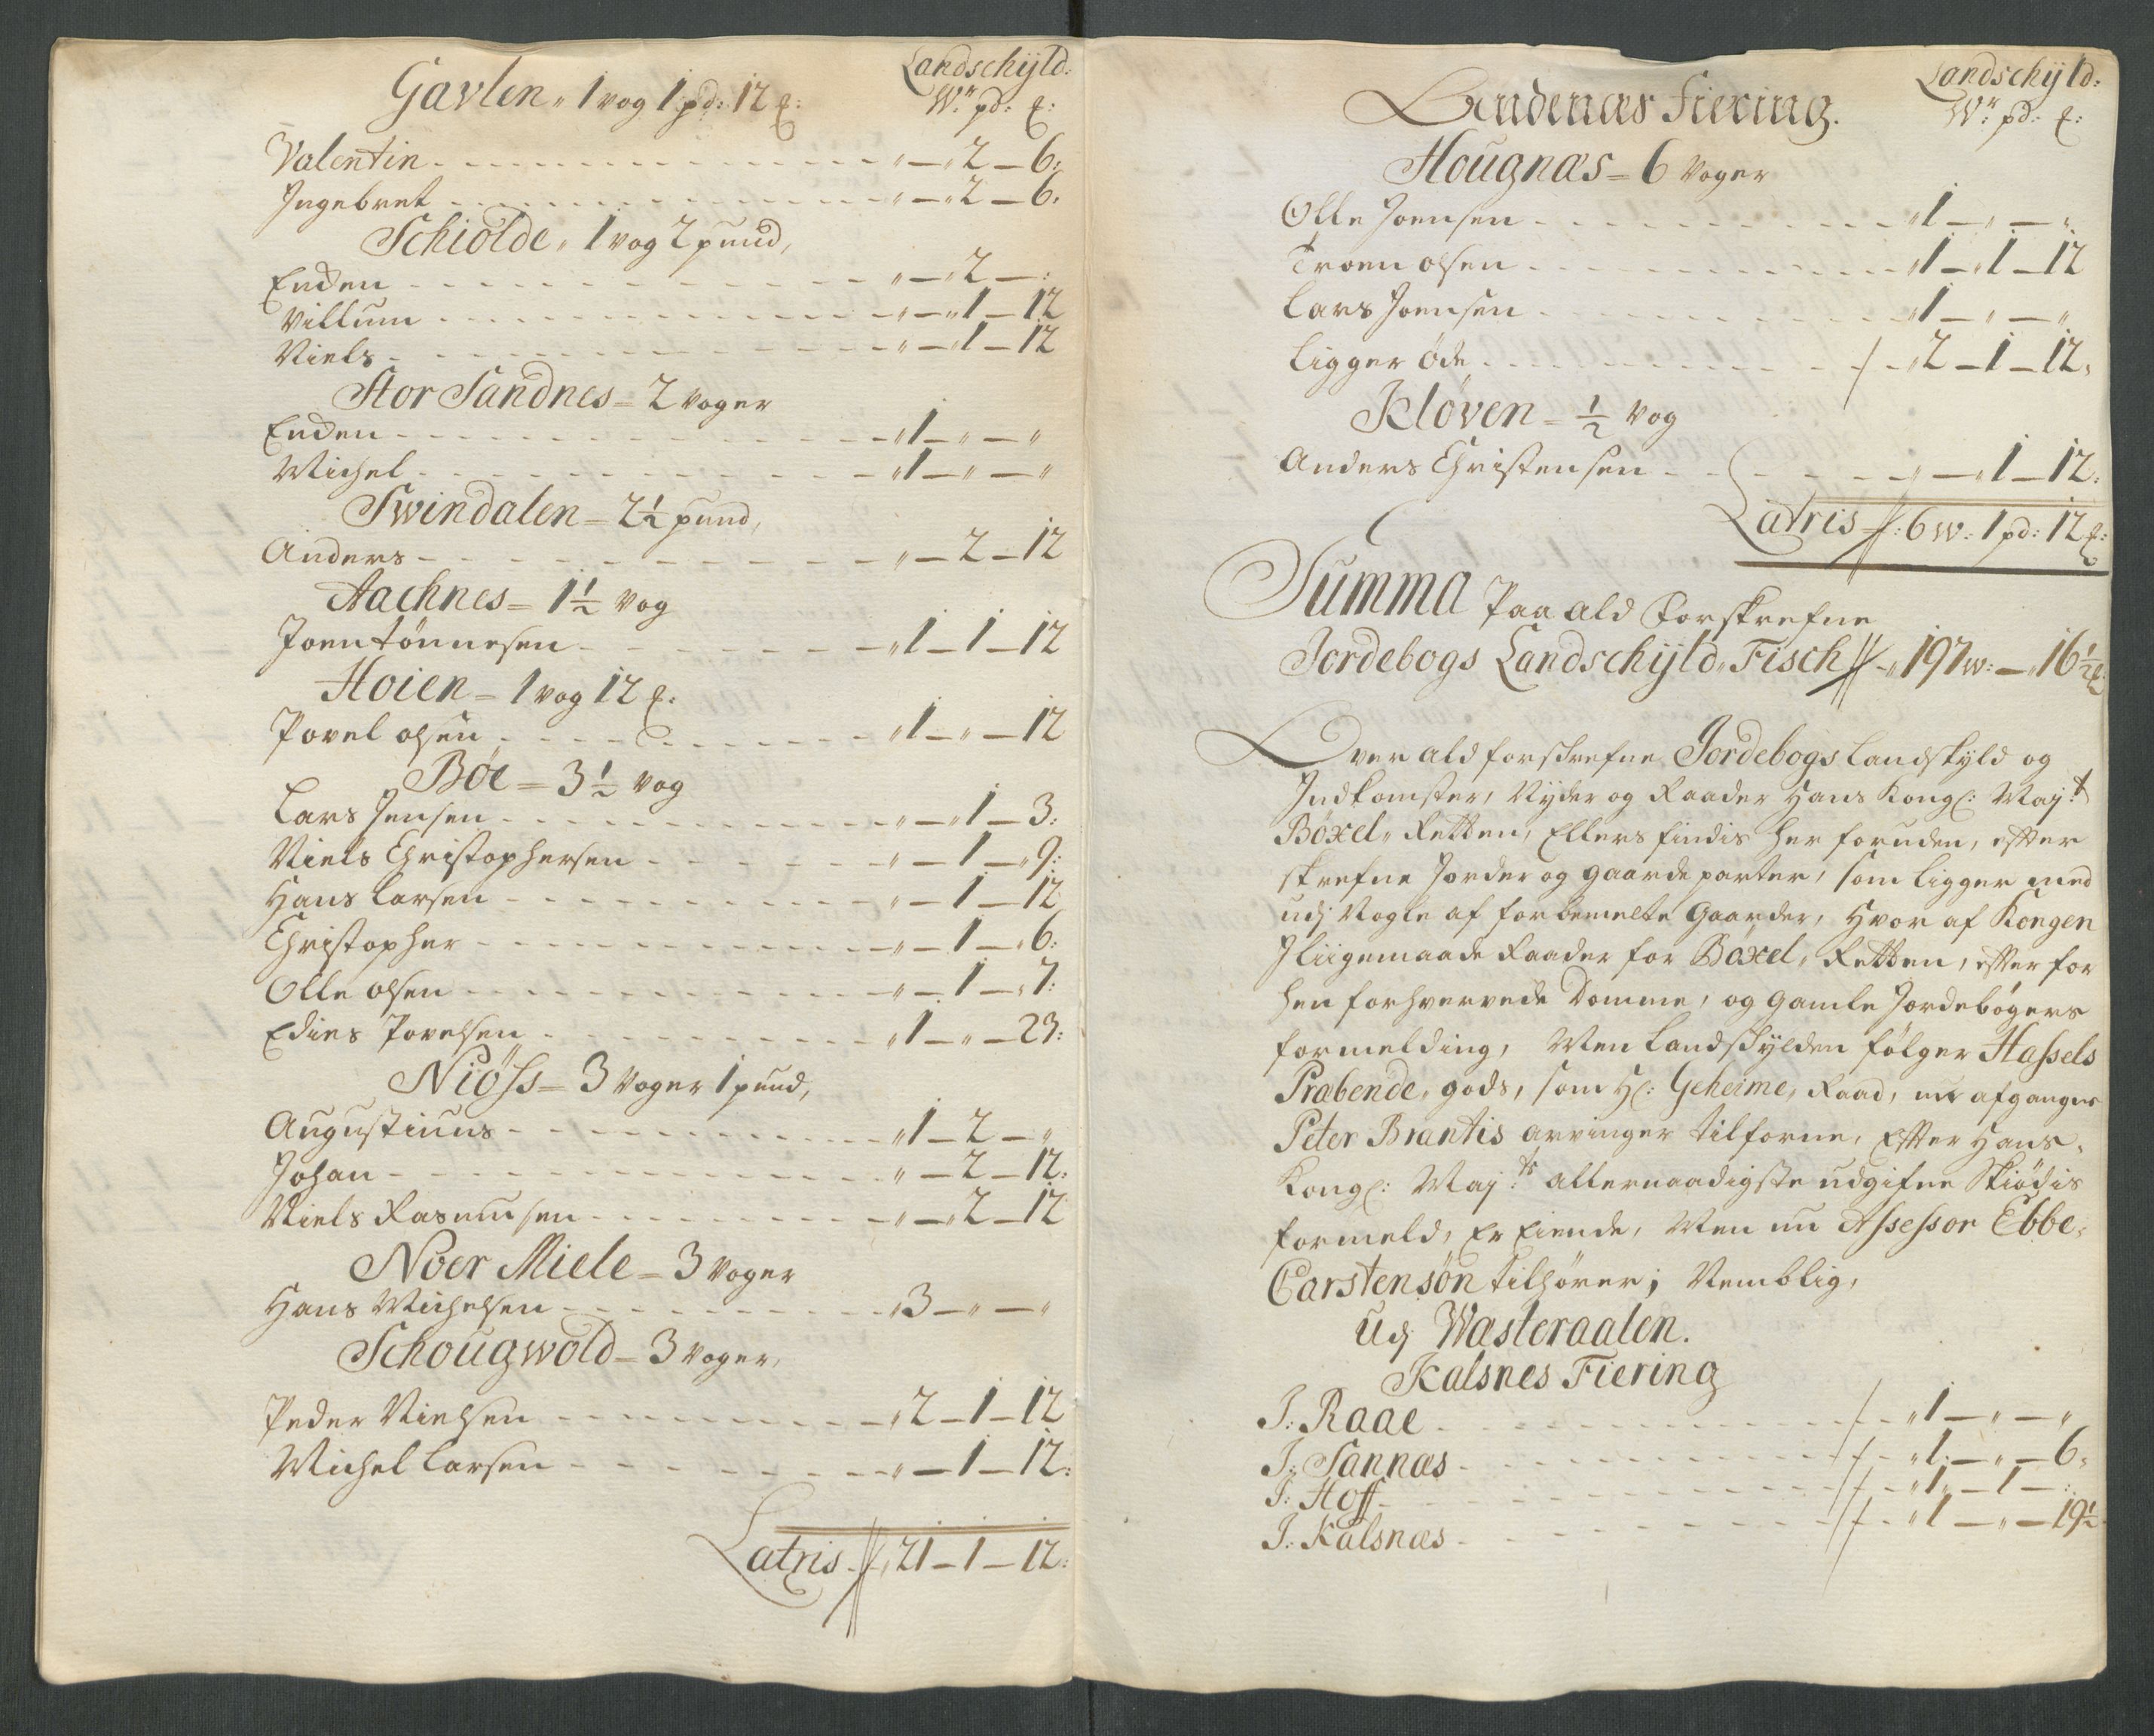 Landschÿld:
Gavlen „ 1 vog 1 pd: 12 ℔: W: pd: ℔:
Valentin - - - „ — 2 — 6:
Ingebret - - - „ — 2 — 6:
Schiolde „ 1 vog 2 pund,
Enden - - - „ — 2 — „
Villum - - - „ — 1 — 12
Niels - - - „ — 1 — 12
Stor Sandnes = 2 Voger
Enden - - - 1 — „ — „
Michel - - - 1 — „ — „
Swindalen = 2½ pund,
Anders - - - „ — 2 — 12
Aachnes = 1½ Vog
Joen tönnesen - - - 1 — 1 — 12
Hoien = 1 vog 12 ℔:
Povel olsen - - - 1 — „ — 12
Böe = 3½ Vog
Lars Jensen - - - „ — 1 — 3:
Niels Christophersen - - - „ — 1 — 9:
Hans Larsen - - - „ — 1 — 12
Christopher - - - „ — 1 — 6:
Olle olsen - - - „ — 1 — 7:
Povelsen - - - 1 — „ — 23:
Niöss = 3 Voger 1 pund,
Augustinus - - - 1 — 2 — „
Johan - - - „ — 2 — 12:
Niels Rasmusen - - - „ — 2 — 12
Noer Miele = 3 Voger
Hans Michelsen - - - 3 — „ — „
Schougwold = 3 Voger,
Peder Nielsen - - - 2 — 1 — 12
Michel Larsen - - - „ — 1 — 12:
Latris 21 — 1 — 12:
Landschÿld:
Fiering. W: pd: ℔:
Hougnæs = 6 Voger
Olle Joensen - - - 1 — „ — „
Troen olsen - - - 1 — 1 — 12
Lars Joensen - - - 1 — „ — „
Ligger öde - - - 2 — 1 — 12,
Klöven = ½ Vog
Anders Christensen - - - „ — 1 — 12:
Latris : 6 w: 1 pd: 12 ℔:
Summa Paa ald Forskrefne
Jordebogs Landschÿld, Fisch 197 w: — 16½ ℔
Over ald forskrefne Jordebogs Landskyld og
Indkomster, Nyder og Raader Hans Kongl: Maÿt
Böxel„ Retten, Ellers findis her foruden, efter
skrefne Jorder og gaarde parter, som ligger med
udj Nogle af forbemelte Gaarder, Hvor af Kongen
J liigemaade Raader for Böxel„ Retten, efter for
hen forhvervede Domme, og gamle Jordebögers
formelding, Men Landskylden fölger Hassels
Præbende„ gods, som Hl: Geheime„ Raad, nu afgangne
Peter Brantis arvinger tilforne, Efter Hans
Kongl: Maÿts allernaadigste udgifne Skiödis
formeld, Er Eiende, Men nu Assessor Ebbe
Carstensön tilhörer; Nemblig,
Udj Wæsteraalen.
Kalsnes Fiering
J: Raae - - - 1 — „ — „
J: Sannæs - - - 1 — „ — 6:
J: Hoff - - - 1 — 1 — „
J: Kalsnæs - - - 1 — „ — 19½